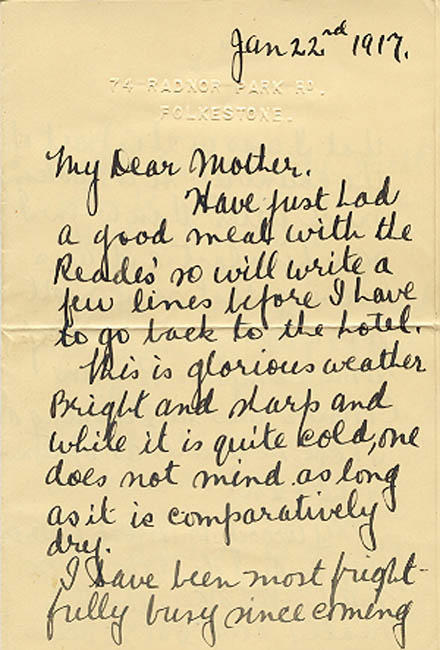 Jan 22nd 1917.
74 RADNOR PARK RD.
FOLKESTONE.
My Dear Mother.
Have just had
a good meal with the
Reades' so will write a
few lines before I have
to go back to the hotel.
This is glorious weather
Bright and sharp and
while it is quite cold, one
does not mind as long
as it is comparatively
dry.
I have been most fright-
fully busy since coming